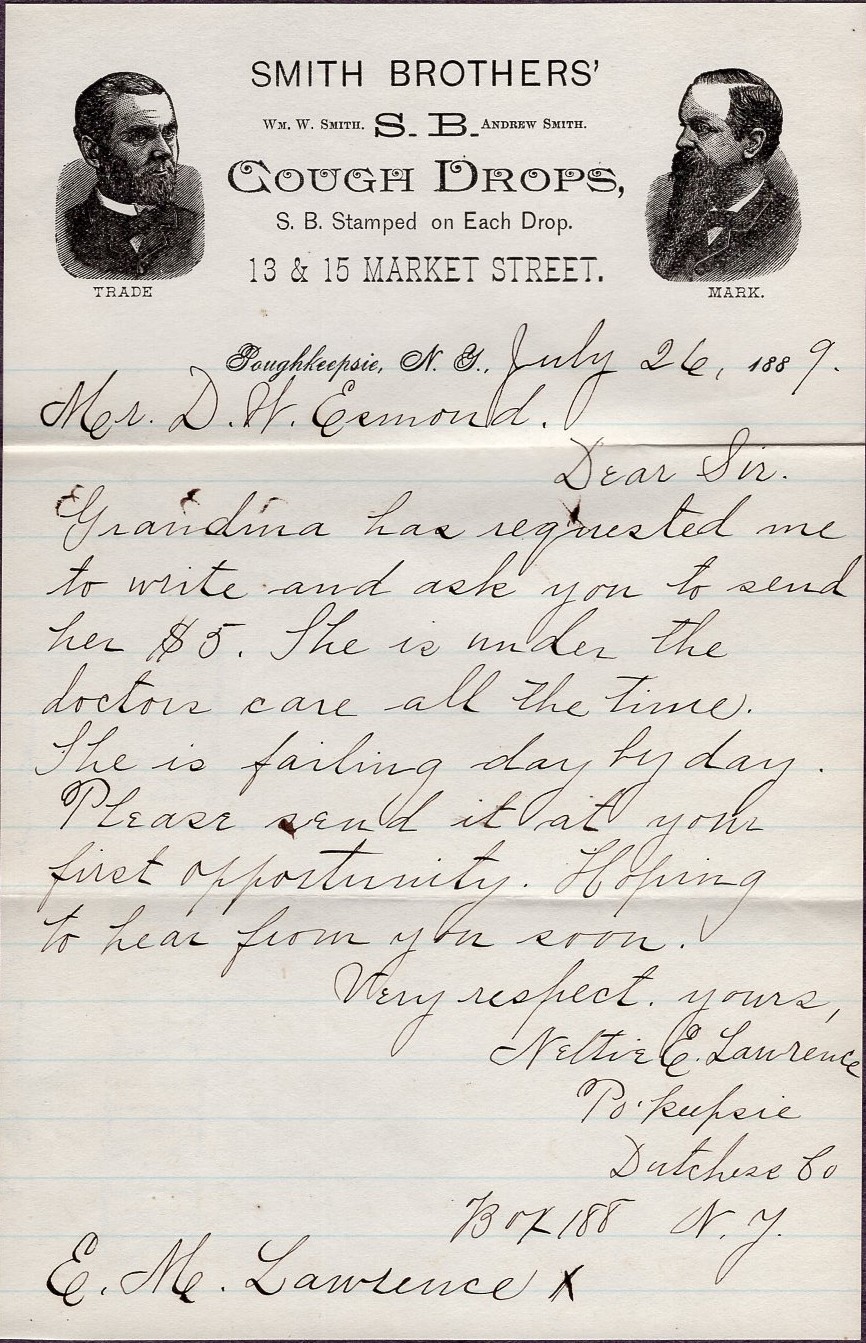 SMITH BROTHERS'
WM. W. SMITH. S. B. ANDREW SMITH.
COUGH DROPS,
S. B. Stamped on Each Drop.
13 & 15 MARKET STREET.
TRADE MARK.
Poughkeepsie, N. Y., July 26, 1889.
Mr. D. W. Esmond.
Dear Sir.
Grandma has requested me
to write and ask you to send
her $5. She is under the
doctors care all the time.
She is failing day by day.
Please send it at your
first opportunity. Hoping
to hear from you soon.
Very respect. yours,
Nettie E. Lawrence
Po'keepsie
Dutchess Co
Box 188 N. Y.
E. M. Lawrence X